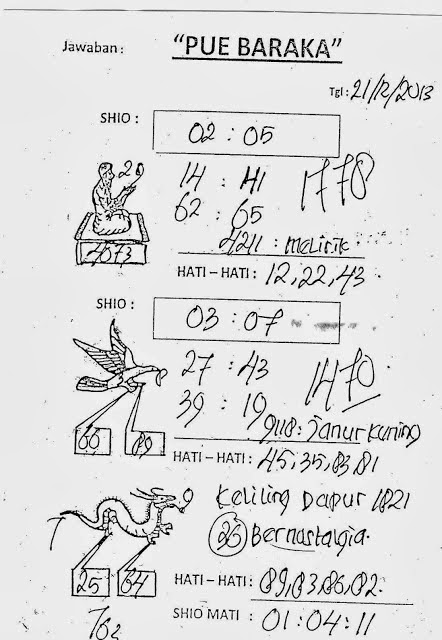 Jawaban : "PUE BARAKA"
Tgl : 21/12/2013
SHIO : 02 : 05
20
14 : 41
1778
62 : 65
4573
4211 : melirik
HATI – HATI : 12,22,43
SHIO : 03 : 07
27 : 43
1470
39 : 19
9118 : Janur kuning
60 89
HATI – HATI : 45,35,83,81
Keliling Dapur 1821
Bernostalgia.
25 64
HATI – HATI : 89,83,86,82.
762
SHIO MATI : 01:04:11